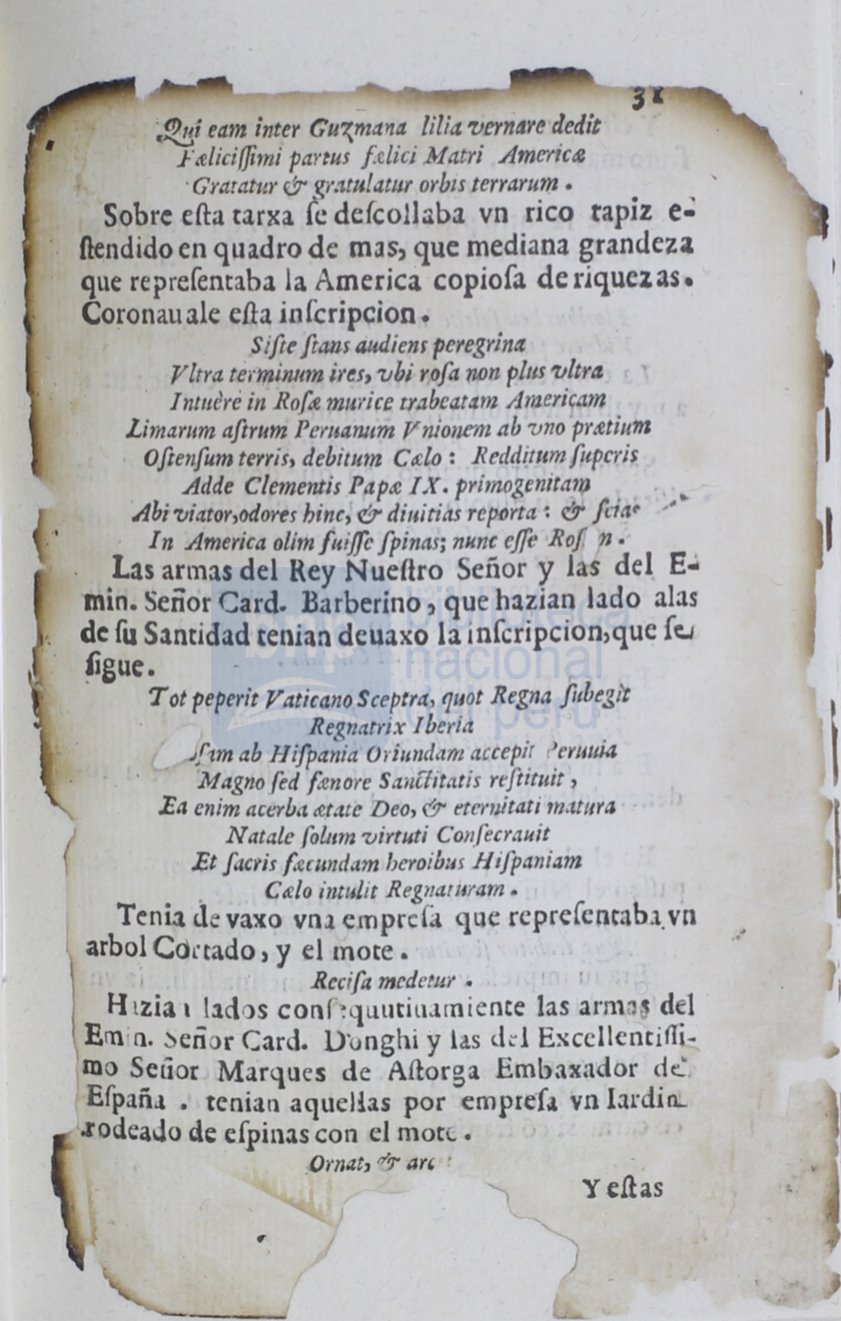 31
Qui eam inter Guzmana lilia vernare dedit
Fæliciſſimi partus fælici Matri Americæ
Gratatur & gratulatur orbis terrarum .
Sobre eſta tarxa ſe deſcollaba vn rico tapiz e-
ſtendido en quadro de mas, que mediana grandeza
que repreſentaba la America copioſa de riquezas.
Coronauale eſta inſcripcion .
Siſte ſtans audiens peregrina
Vltra terminum ires, vbi roſa non plus vltra
Intuère in Roſæ murice trabeatam Americam
Limarum aſtrum Peruanum Vnionem ab vno prætium
Oſtenſum terris, debitum Cælo : Redditum ſuperis
Adde Clementis Papæ IX. primogenitam
Abi viator,odores hinc, & diuitias reporta : &
In America olim fuiſſe ſpinas; nunc eſſe
Las armas del Rey Nueſtro Señor y las del E-
min. Señor Card. Barberino , que hazian lado alas
de ſu Santidad tenian deuaxo la inſcripcion,que ſe
ſigue.
Tot peperit Vaticano Sceptra, quot Regna ſubegit
Regnatrix Iberia
ab Hiſpania Oriundam accepit Peruuia
Magno ſed fænore Sanctitatis reſtituit ,
Ea enim acerba ætate Deo, & eternitati matura
Natale ſolum virtuti Conſecrauit
Et ſacris fæcundam heroibus Hiſpaniam
Cælo intulit Regnaturam .
Tenia de vaxo vna empreſa que repreſentaba vn
arbol Cortado , y el mote .
Reciſa medetur .
Hazian lados conſequutiuamiente las armas del
Emin. Señor Card. Donghi y las del Excellentiſſi-
mo Señor Marques de Aſtorga Embaxador de
Eſpaña . tenian aquellas por empreſa vn Iardin
rodeado de eſpinas con el mote .
Ornat, &
Y eſtas
biblioteca
nacional
del perú